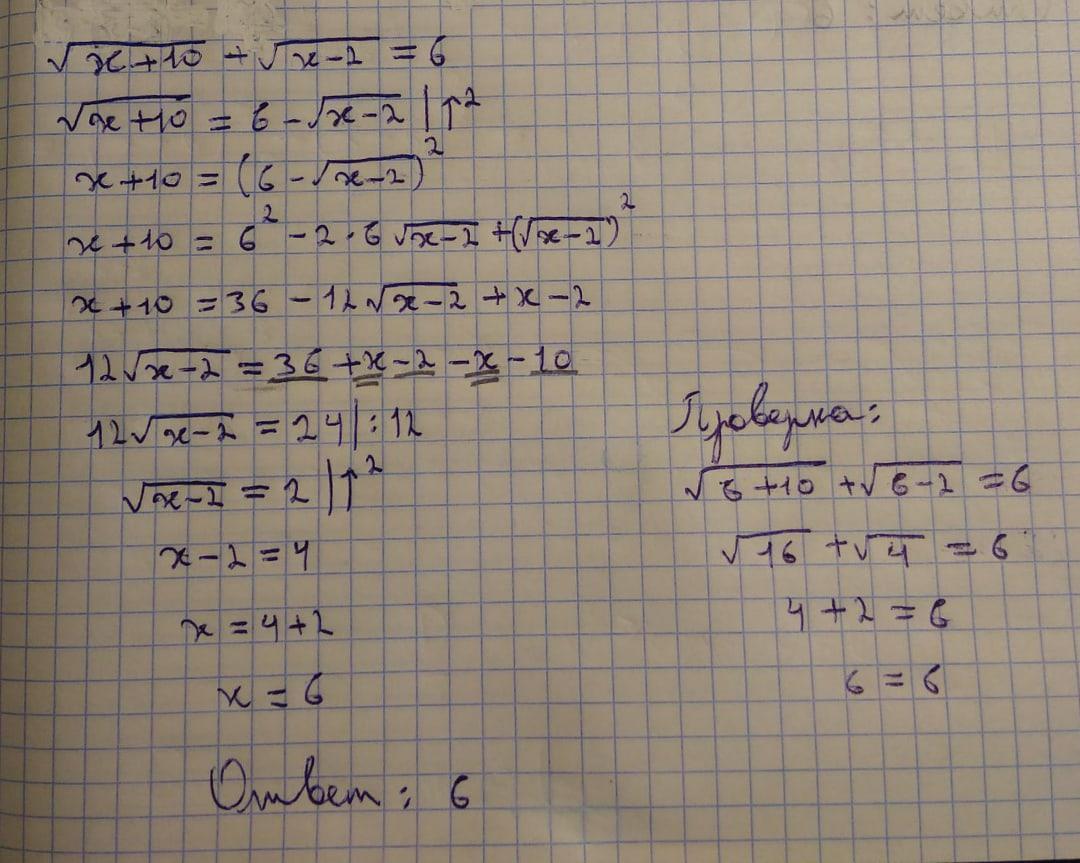 √x+10 + √x-2 = 6
√x+10 = 6 - √x-2 |↑²
x+10 = (6 - √x-2)²
x+10 = 6² - 2·6 √x-2 + (√x-2)²
x+10 = 36 - 12√x-2 + x - 2
12√x-2 = 36 + x - 2 - x - 10
12√x-2 = 24 |:12
√x-2 = 2 |↑²
x-2 = 4
x = 4+2
x = 6
Ответ: 6
Проверка:
√6+10 + √6-2 = 6
√16 + √4 = 6
4 + 2 = 6
6 = 6